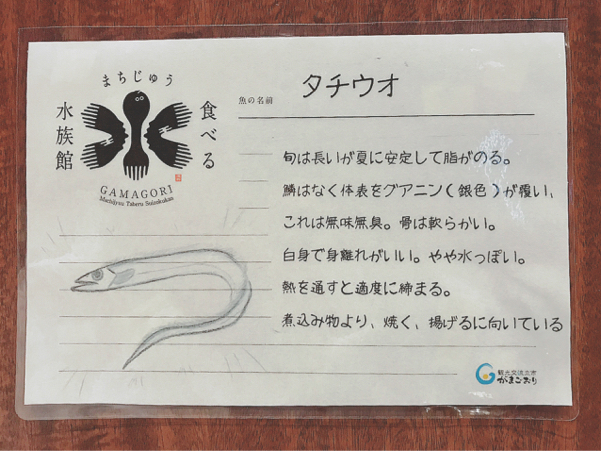 まちじゅう
食べる
水族館
GAMAGORI
Machijyuu Taberu Suizokukan
魚の名前
タチウオ
旬は長いが夏に安定して脂がのる。
鱗はなく体表をグアニン(銀色)が覆い、
これは無味無臭。骨は軟らかい。
白身で身離れがいい。やや水っぽい。
熱を通すと適度に締まる。
煮込み物より、焼く、揚げるに向いている
観光交流立市
がまごおり